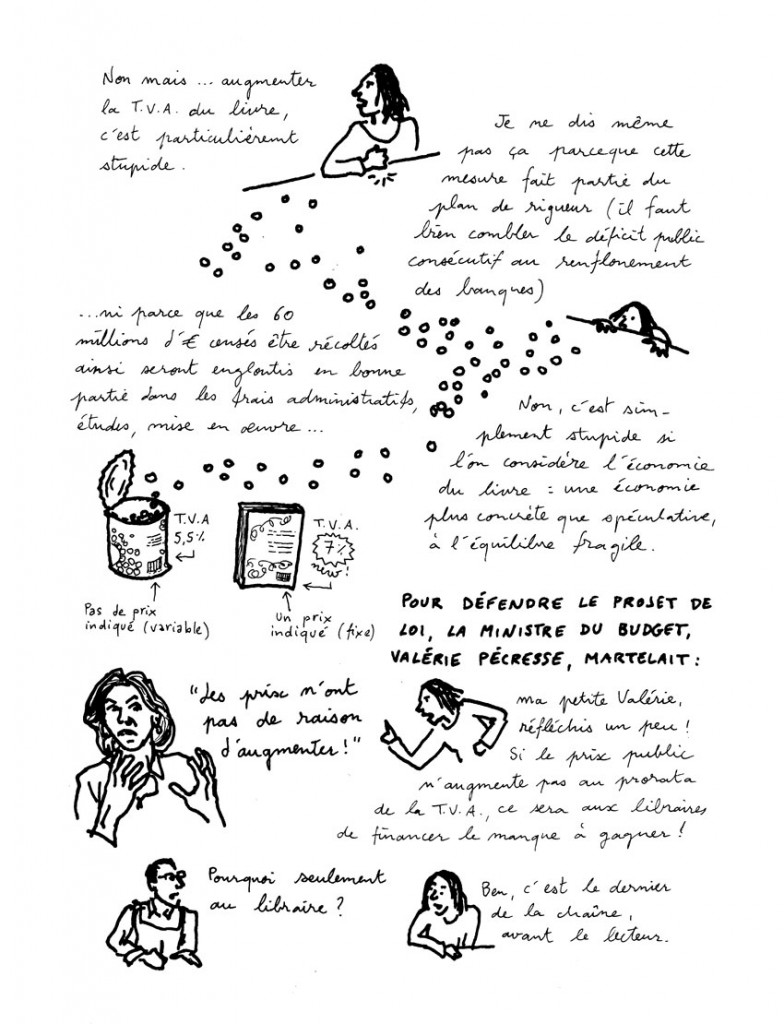 Non mais ... augmenter
la T.V.A. du livre,
c'est particulièremt
stupide.
Je ne dis même
pas ça parceque cette
mesure fait partie du
plan de rigueur (il faut
bien combler le déficit public
consécutif au renflonement
des banques)
...ni parce que les 60
millions d'€ censés être récoltés
ainsi seront engloutis en bonne
partie dans les frais administratifs,
études, mise en œuvre ...
Non, c'est sim-
plement stupide si
l'on considère l'économie
du livre : une économie
plus concrète que spéculative,
à l'équilibre fragile.
T.V.A
5,5%
Pas de prix
indiqué (variable)
T.V.A.
7%
new!
Un prix
indiqué (fixe)
POUR DÉFENDRE LE PROJET DE
LOI, LA MINISTRE DU BUDGET,
VALÉRIE PÉCRESSE, MARTELAIT :
"Les prix n'ont
pas de raison
d'augmenter!"
ma petite Valérie,
réfléchis un peu !
Si le prix public
n'augmente pas au prorata
de la T.V.A., ce sera aux libraires
de financer le manque à gagner !
Pourquoi seulement
au libraire ?
Ben, c'est le dernier
de la chaîne,
avant le lecteur.